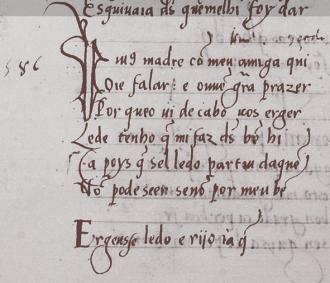 Esquivaia ds̄ que melhi foy dar
586
Pus madre cō meu amiga qui
Oie falar: e ouue grã prazer
Por queo ui de cabo uos erger
Lede tenho q̄ mi faz ds̄ bē hi
Ca poys q̄ sel ledo partiu daquē
Nō pode seer senō por meu bē
Ergense ledo e rijo ia q̄